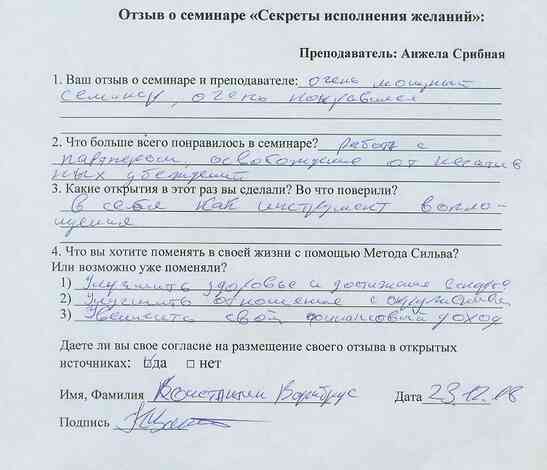 Отзыв о семинаре «Секреты исполнения желаний»:
Преподаватель: Анжела Срибная
1. Ваш отзыв о семинаре и преподавателе: очень мощный
семинар, очень понравился
2. Что больше всего понравилось в семинаре? Работа с
партнером, освобождение от негатив
ных убеждений
3. Какие открытия в этот раз вы сделали? Во что поверили?
В себя как инструмент вопло-
щения
4. Что вы хотите поменять в своей жизни с помощью Метода Сильва?
Или возможно уже поменяли?
1) Улучшить здоровье и достижение
2) Улучшить отношение с окружающими
3) Увеличить свой финансовый доход
Даете ли вы свое согласие на размещение своего отзыва в открытых
источниках: ☑да □ нет
Имя, Фамилия Константин Дата 23.12.08
Подпись